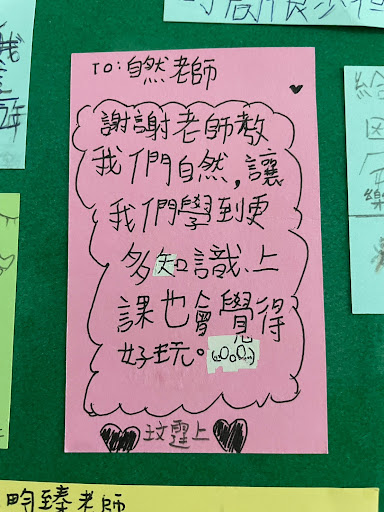 TO:自然老師
謝謝老師教
我們自然,讓
我們學到更
多知識上
課也會覺得
好玩。
玟霆上
昀臻老師